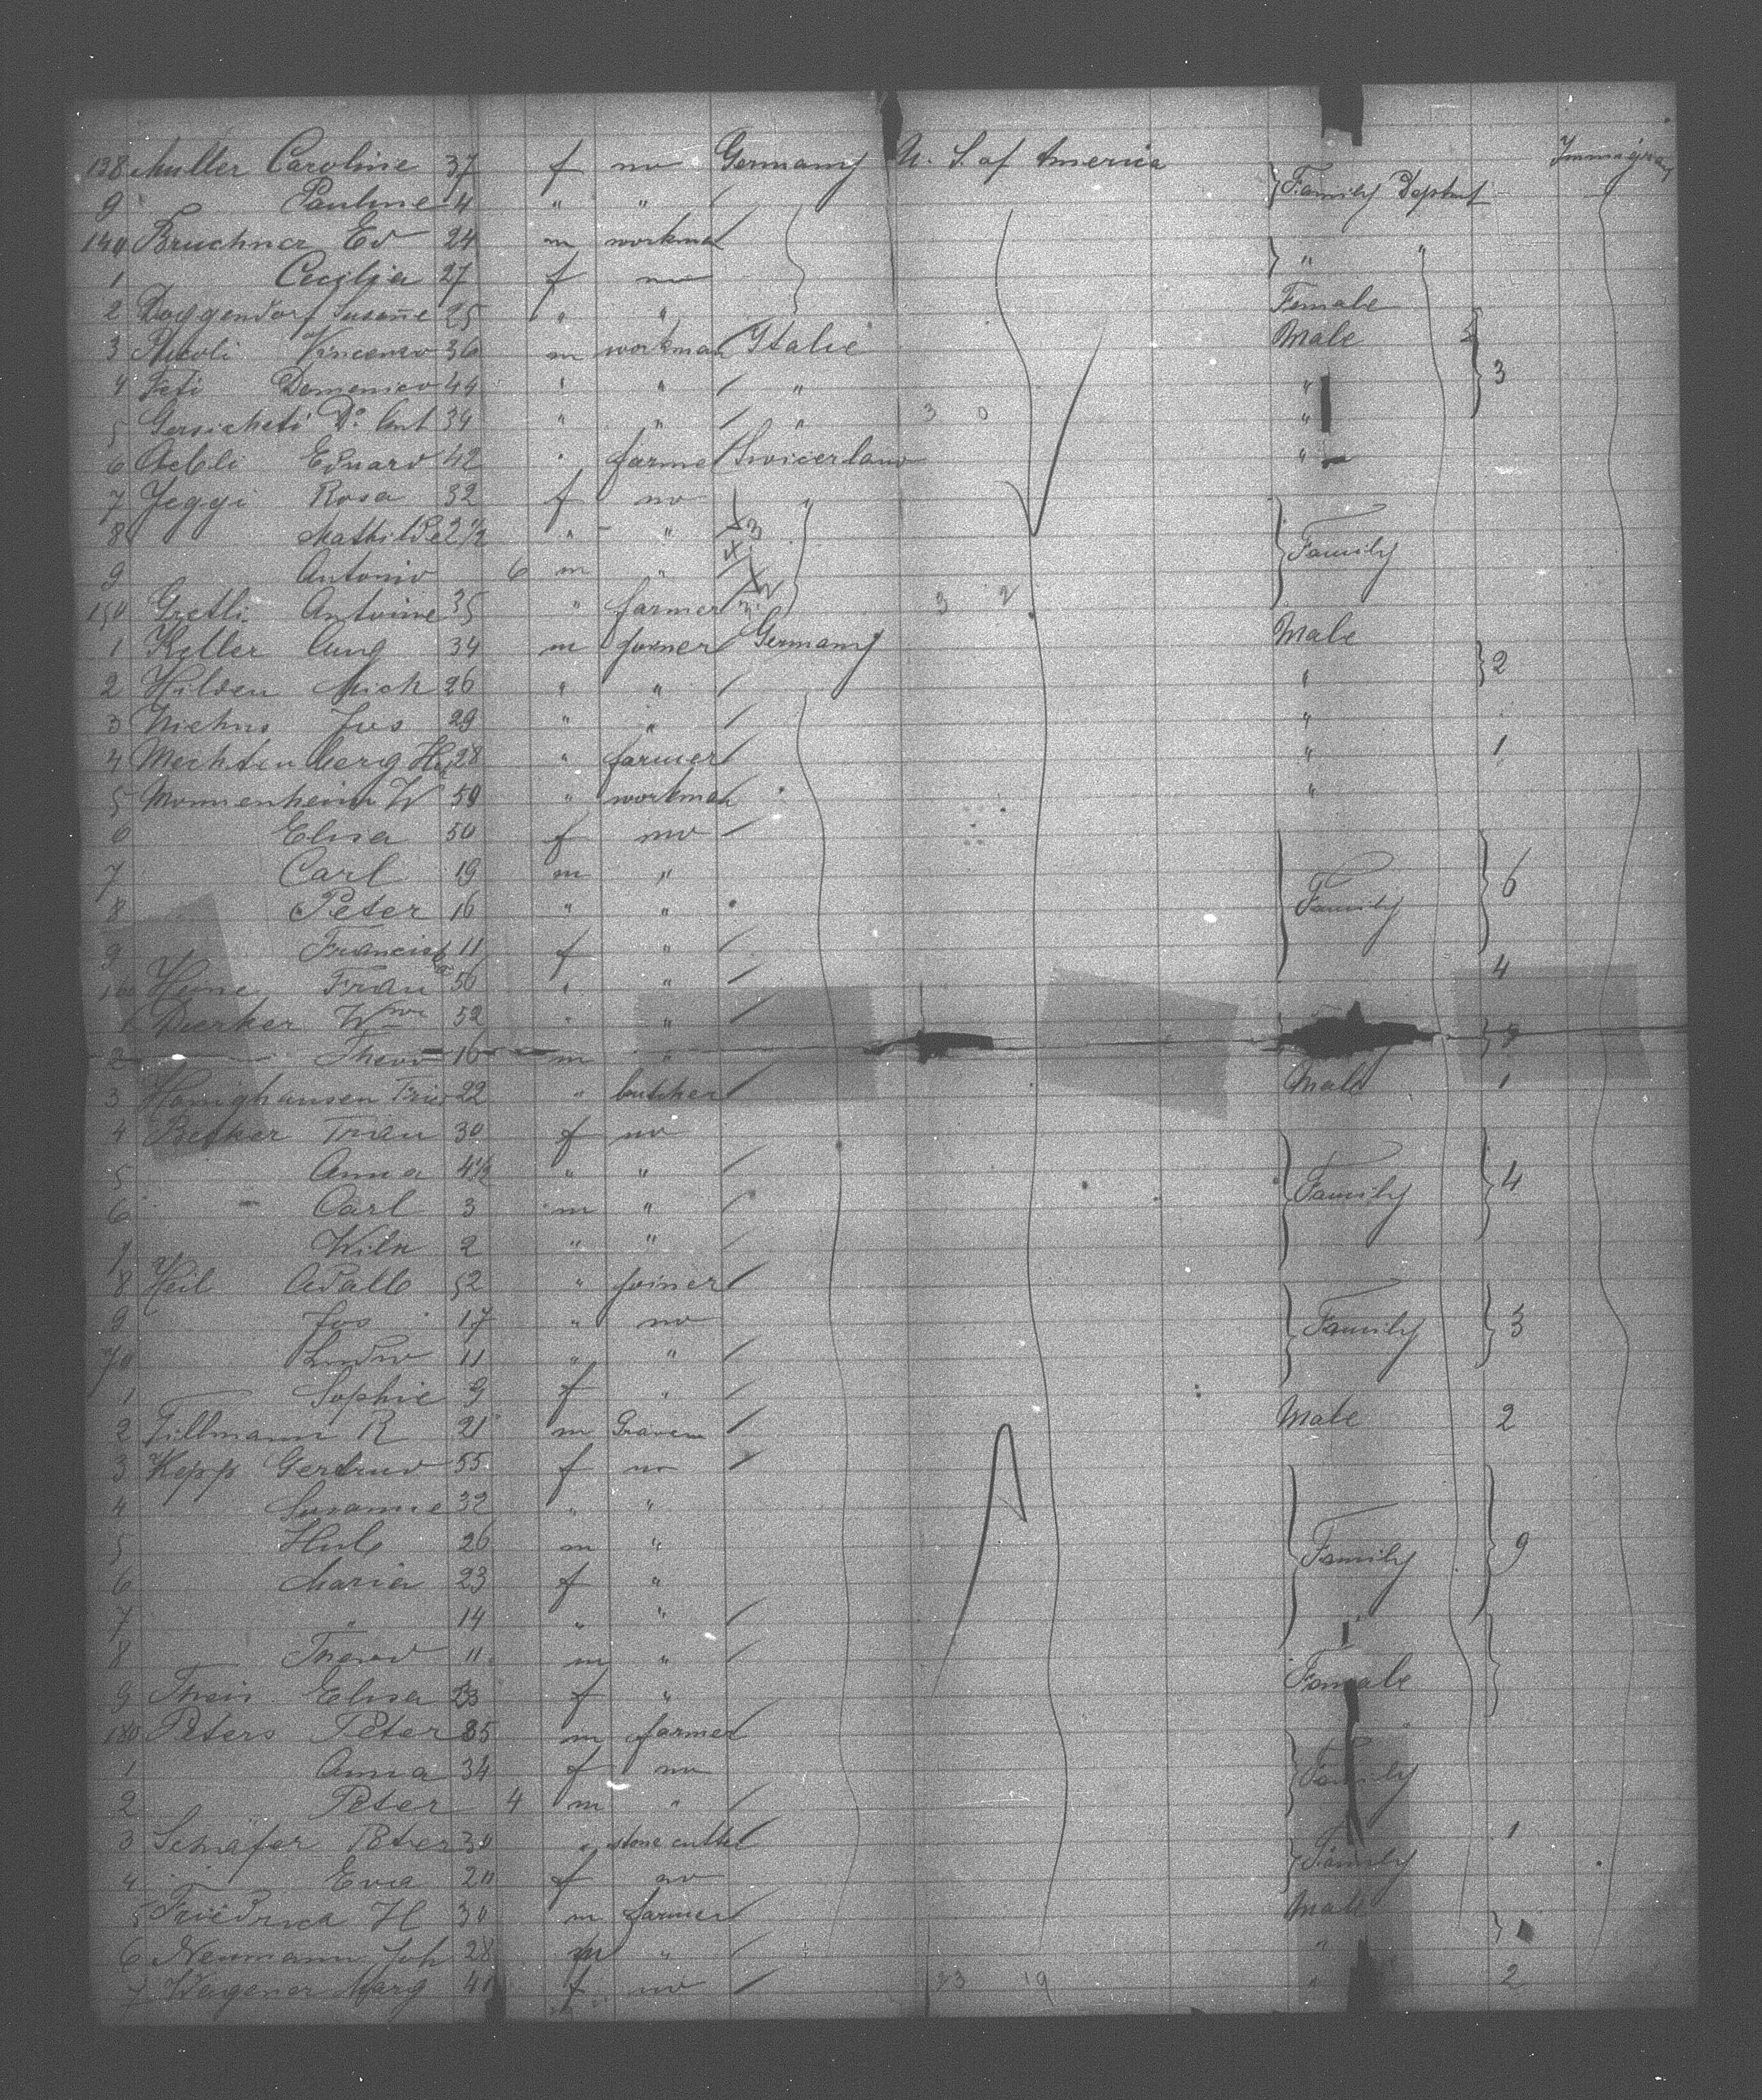 138 Muller Caroline 37 f no Germany U. S. of America } Family Depknt Immigran
9 " Pauline 4 " " /
140 Bruchner Ed 24 m workman } " "
1 Cecilia 27 f no
2 Doggendorf Susane 25 " " Female
3 Vincenzo 36 m workman Italie Male
4 Feti Domenico 44 " " / " " 3
5 D: Ant 34 " " / " 3 0 "
6 Aebli Eduard 42 " farmer Swicerland "
7 Jeggi Rosa 32 f no "
8 Mathilde 2 1/2 " " 3 } Family
9 Antonio 6 m "
150 Gretli Antoine 35 " farmer 3 2
1 Keller Aug 34 m joiner Germany Male
2 Hilden Mich 26 " " / " } 2
3 Niehus Jos 29 " " / "
4 Mechtenberg 28 " farmer / " 1
5 Monnenheim W 50 " workman "
6 Elisa 50 f no /
7 Carl 19 m " } 6
8 Peter 16 " " } Family
9 Francisk 11 f " /
160 Heine Frau 50 " " / 4
1 Dierker Wwe 52 " " /
2 Theod 16 m "
3 Honighausen 22 " butcher / Male 1
4 Becker Frau 30 f no
5 Anna 4 1/2 " " /
6 Carl 3 m " / } Family } 4
7 Wilh 2 " " /
8 Heil Adalb 52 " joiner /
9 Jos 17 " no } Family } 3
70 Ludw 11 " " /
1 Sophie 9 f " /
2 Tillmann R 21 m / Male 2
3 Kepp Gertrud 55 f no /
4 Susanne 32 " "
5 Hub 26 m " } Family } 9
6 Maria 23 f "
7 " 14 " " /
8 Theod 11 m " /
9 Theis Elisa 23 f " Female
180 Peters Peter 35 m farmer
1 Anna 34 f no } Family
2 Peter 4 m " /
3 Schäfer Peter 30 " stone cutter / 1
4 Eva 20 f no } Family
5 Friedrich H 30 m farmer / Male
6 Neumann Joh 28 m " / " }
7 Wagener Marg 40 f no / 23 19 " 2